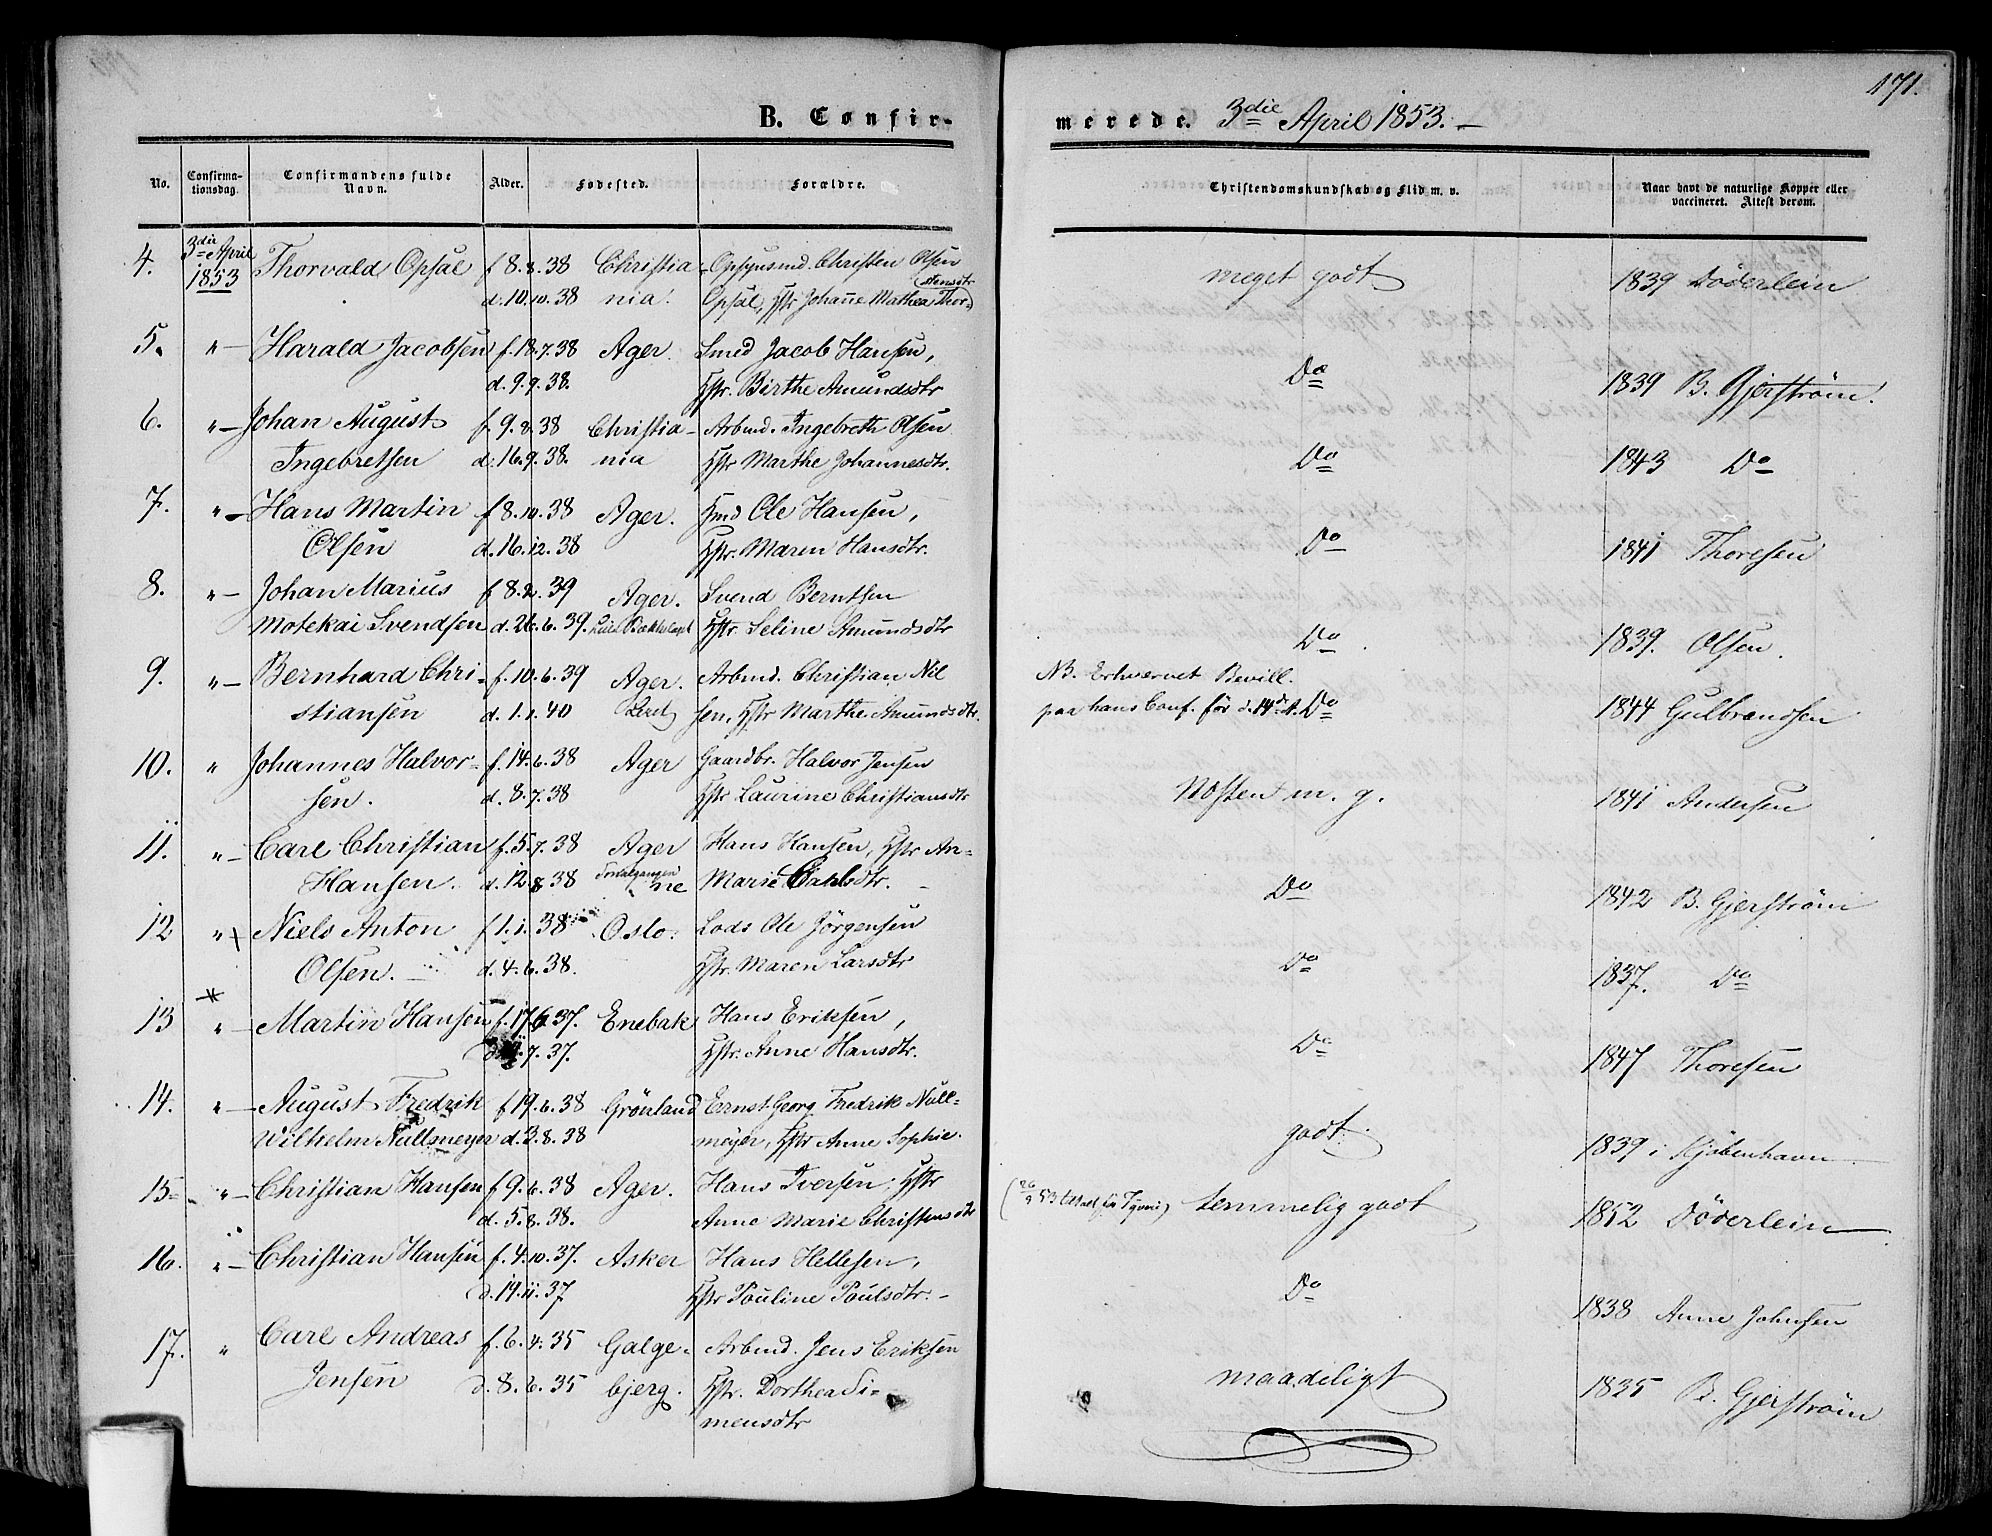 171.
B. Confir-
merede. 3die April 1853.
No. Confirma-tionsdag. Confirmandens fulde Navn. Alder. Fødested. Forældre. Christendomskundskab og Flid m. v. Naar havt de naturlige Kopper eller vaccineret. Attest derom.
4. 3die April Thorvald Opsal f 8.8.38 Christia- Opsynsmd. Christen Olsen meget godt 1839 Döderlein
1853 d. 10.10.38 nia. Opsal, Hstr Johanne Mathea Thorstensdtr
5. " Harald Jacobsen f. 18.7.38 Ager. Smed Jacob Hansen, Do 1839 B. Gjerström.
d. 9.9.38. Hstr. Birthe Amundsdtr
6. " Johan August f. 9.8.38 Christia- Arbmd. Ingebreth Olsen Do 1843 Do
Ingebretsen d. 16.9.38. nia Hstr Marthe Johannesdtr.
7. " Hans Martin f 8.10.38 Ager. Hmd Ole Hansen, Do 1841 Thoresen
Olsen d. 16.12.38 Hstr. Maren Hansdtr.
8. " Johan Marius f 8.2.39 Ager. Svend Berntsen Do 1839. Olsen.
Motekai Svendsen d. 26.6.39. Hstr. Seline Amundsdtr
9. " Bernhard Chri- f. 10.6.39 Ager. Arbmd. Christian Nil NB. Erhvervet Bevill.
stiansen d. 1.1.40 sen, Hstr Marthe Amundsdtr. paa hans Conf. før d. 14de A. Do 1844 Gulbrandsen
10. " Johannes Halvor- f. 14.6.38 Ager Gaardbr. Halvor Jensen Næsten m. g. 1841 Andersen
sen. d. 8.7.38 Hstr Laurine Christiansdtr
11. " Carl Christian f. 5.7.38 Ager Hans Hansen, Hstr An- Do 1842 B. Gjerström
Hansen. d. 12.8.38 ne Marie Dahlsdtr.
12 " Niels Anton f 1.1.38 Oslo. Lods Ole Jörgensen Do 1837. Do
Olsen. d. 4.6.38. Hstr. Maren Larsdtr
13 " Martin Hansen f. 17.6.37. Enebak Hans Eriksen, Do 1847 Thoresen
7.37. Hstr. Anne Hansdtr.
14. " August Fredrik f 19.6.38 Grönland Ernst Georg Fredrik Null- godt 1839 i Kjöbenhavn
Wilhelm Nullmeyer d. 3.8.38 meyer, Hstr Anne Sophie.
15 " Christian Hansen f 9.6.38 Ager. Hans Iversen, Hstr temmelig godt 1852 Döderlein
d. 5.8.38. Anne Marie Christensdtr
16. " Christian Hansen f. 4.10.37. Asker Hans Hellesen, Do 1838 Anne Johnsen
d. 19.11.37 Hstr Pouline Poulsdtr.
17. " Carl Andreas f. 6.4.35 Galge- Arbmd. Jens Eriksen maadeligt 1835 B. Gjerström
Jensen d. 8.6.35 bjerg. Hstr. Dorthea Si-
mensdtr